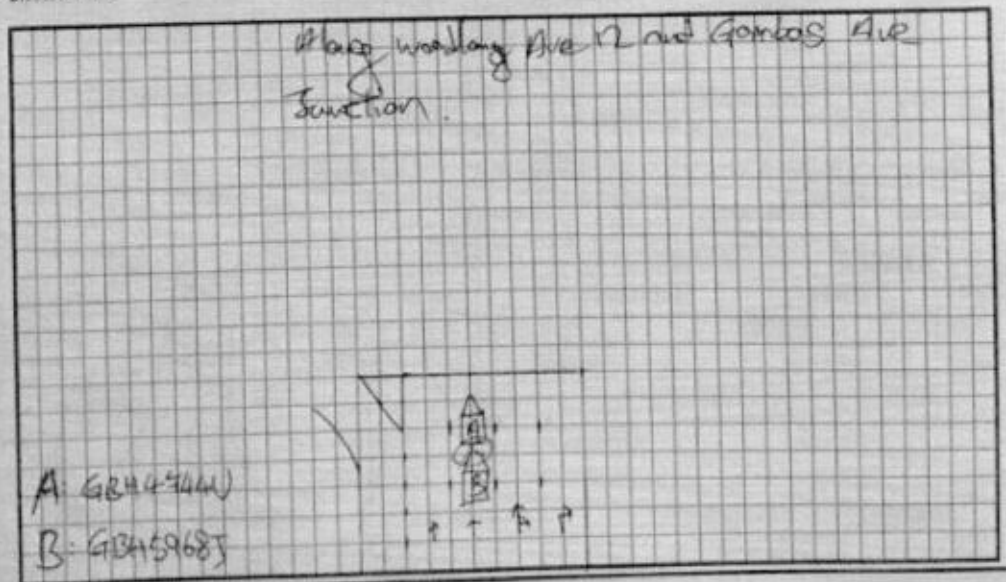 Along woodlang Ave 12 and Gambas Ave
Junction.
A
B
A: GBH4744U
B: GBH5968J